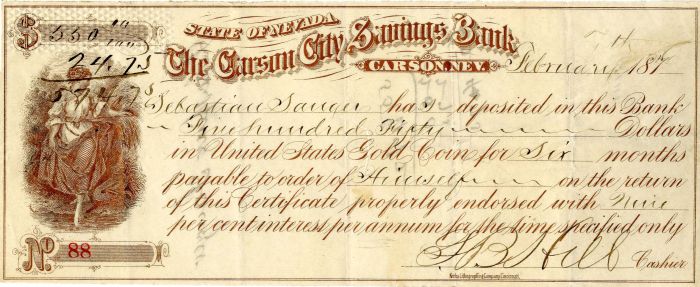 STATE OF NEVADA
$ 550 10/100
24.75
574.75
The Carson City Savings Bank
CARSON, NEV. February 7th 187
Sebastian Sauger has deposited in this Bank
Five hundred Fifty Dollars
in United States Gold Coin for Six months
payable to order of Himself on the return
of this Certificate properly endorsed with Nine
per cent interest per annum for the time specified only
No 88
Hill Cashier